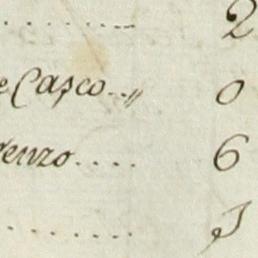 2
e Casco..,, 0
enzo.... 6